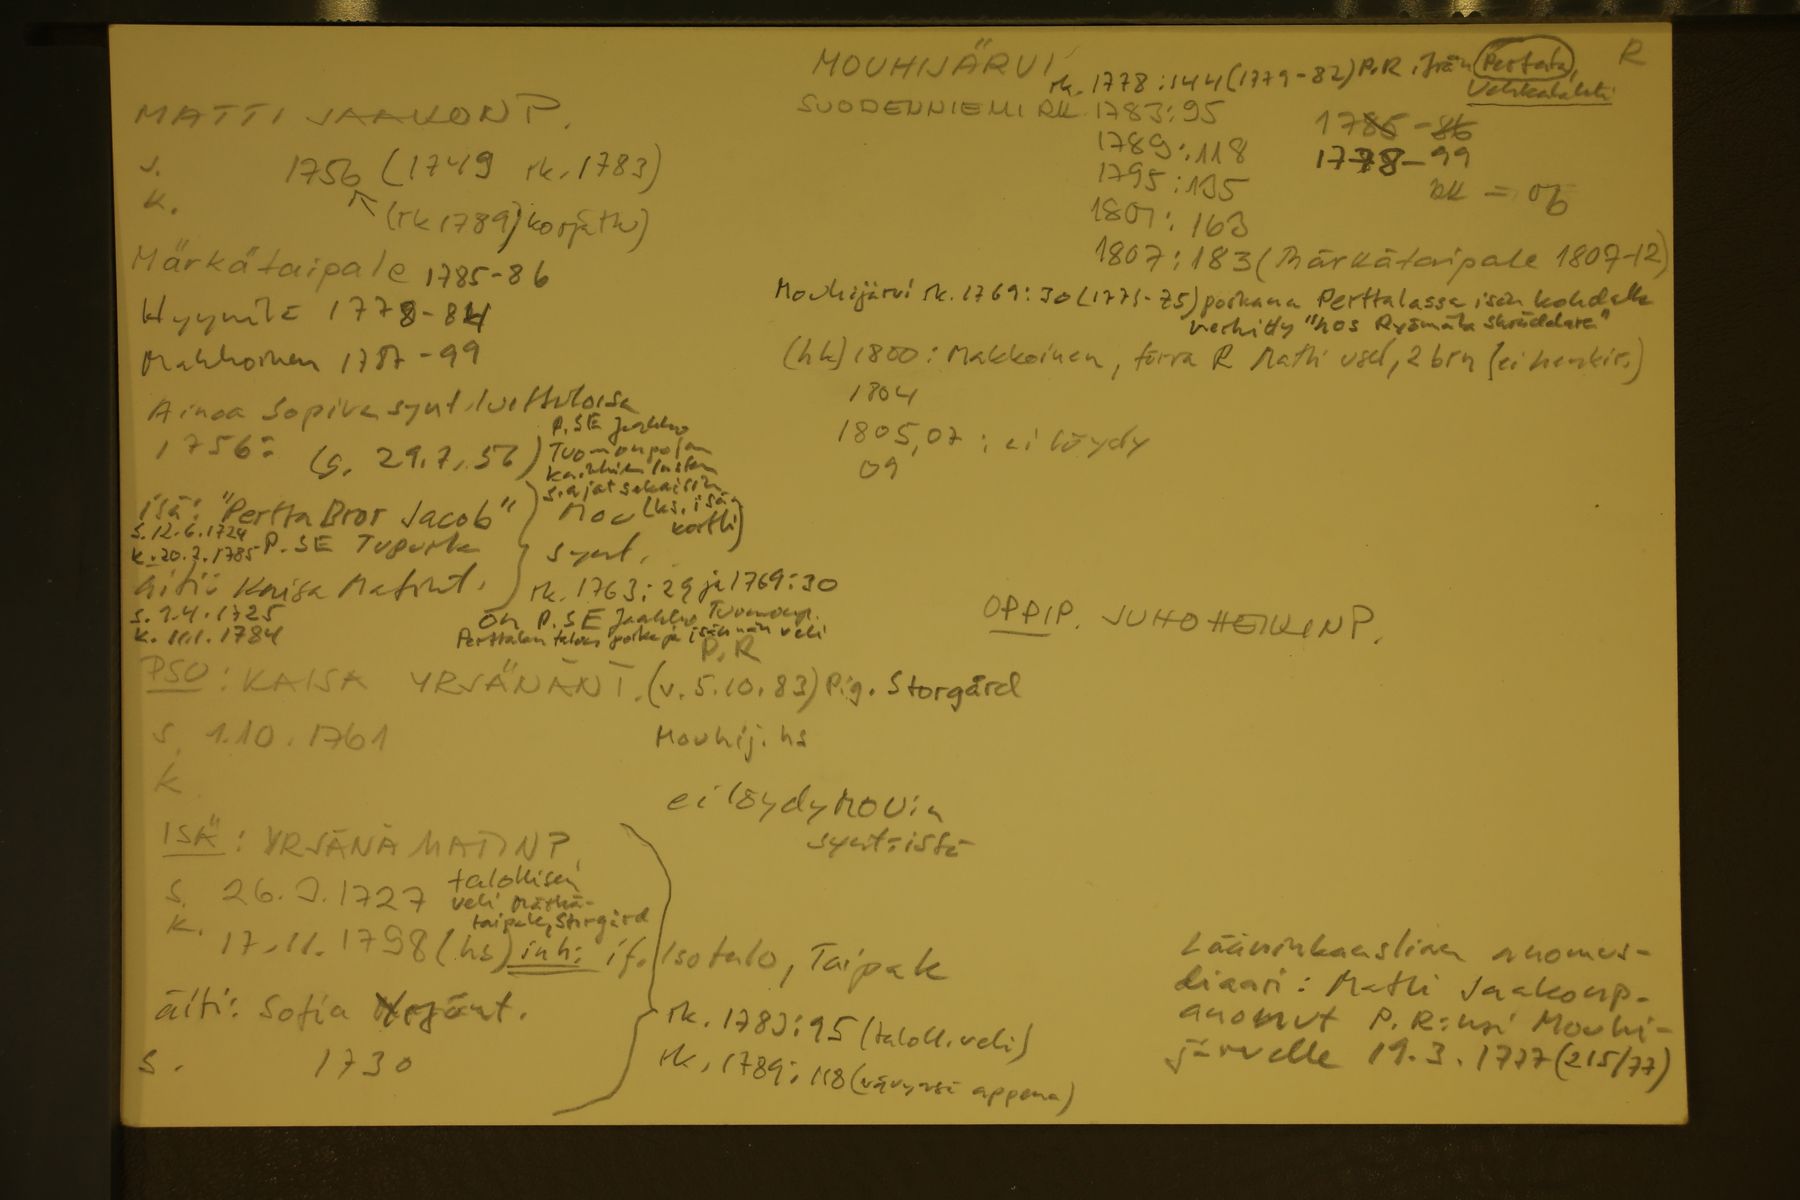 MOUHIJÄRVI
rk. 1778:144 (1779-82) P.R. från Perttala, Vehkalahti
R
SUODENNIEMI RK 1783:95
1785-86
1789:118
1778-99
1795:135
RK = 06
1801: 163
1807:183 (Märkätaipale 1807-12)
MATTI JAAKONP.
s. 1756 (1749 rk. 1783)
k.
(rk 1789) korjattu)
Märkätaipale 1785-86
Hyynilä 1778-84
Makkoinen 1787-99
Mouhijärvi rk. 1769:30 (1771-75) poikana Perttalassa isän kohdalla
merkitty "hos Ryömälä skräddare"
(hk) 1800: Makkoinen, förra R Matti usel, 2 brn (ei henkir.)
1804
1805,07: ei löydy
09
Ainoa sopiva synt. luettelossa
1756: (s. 29.7.56)
P.SE Jaakko
Tuomonpojan
kaikkien lasten
s.ajat sekaisin
Mou (ks. isän
kortti)
synt.
isä: "Pertta Bror Jacob"
s. 12.6.1724
k. 20.2.1785 P.SE Tupurla
äiti: Kaisa Matint.
s. 1.4.1725
k. 11.1.1784
rk. 1763:29 ja 1769:30
on P.SE Jaakko Tuomonp.
Perttalan talon poika ja isännän veli
OPPIP. JUHO HEIKINP.
P.R
PSO: KAISA YRJÄNÄNT. (v. 5.10.83) Pig. Storgård
s. 1.10.1761
Mouhij. hs
k
ei löydy MOU:n
synt:istä
ISÄ: YRJÄNÄ MATINP.
s. 26.2.1727
talollisen
veli Märkä-
taipale, Storgård
k.
17.11.1798 (hs) inh: if. Isotalo, Taipale
äiti: Sofia Yrjönt.
s. 1730
rk. 1783:95 (taloll. veli)
rk. 1789:118 (vävynsä appena)
Lääninkanslian anomus-
diaari: Matti Jaakonp.
anonut P.R:ksi Mouhi-
järvelle 19.3.1777 (215/77)